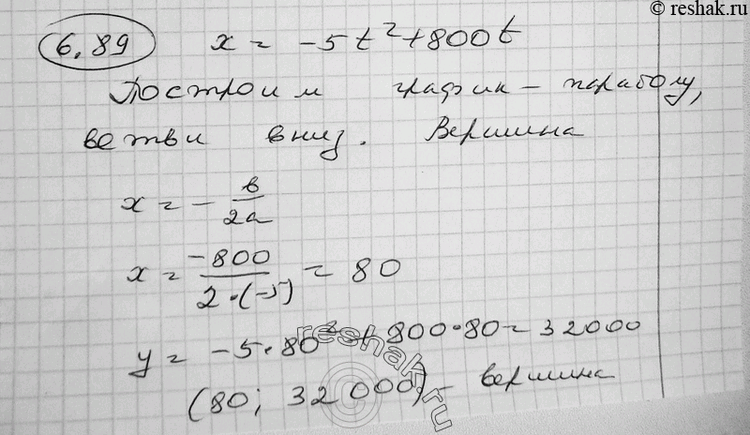 © reshak.ru
6.89 x = -5t²+800t
Построим график - параболу,
ветви вниз. Вершина
x = - в/2a
x = -800/2·(-5) = 80
y = -5·80²+800·80=32000
(80; 32000) - вершина
reshak.ru